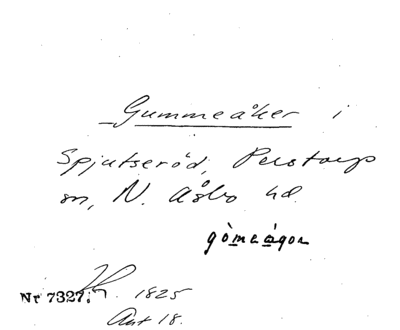 Gummeåker i
Spjutseröd, Perstorps
sn, N. Åsbo hd.
gòmeågor
Nr 7327. 1825
Akt 18.